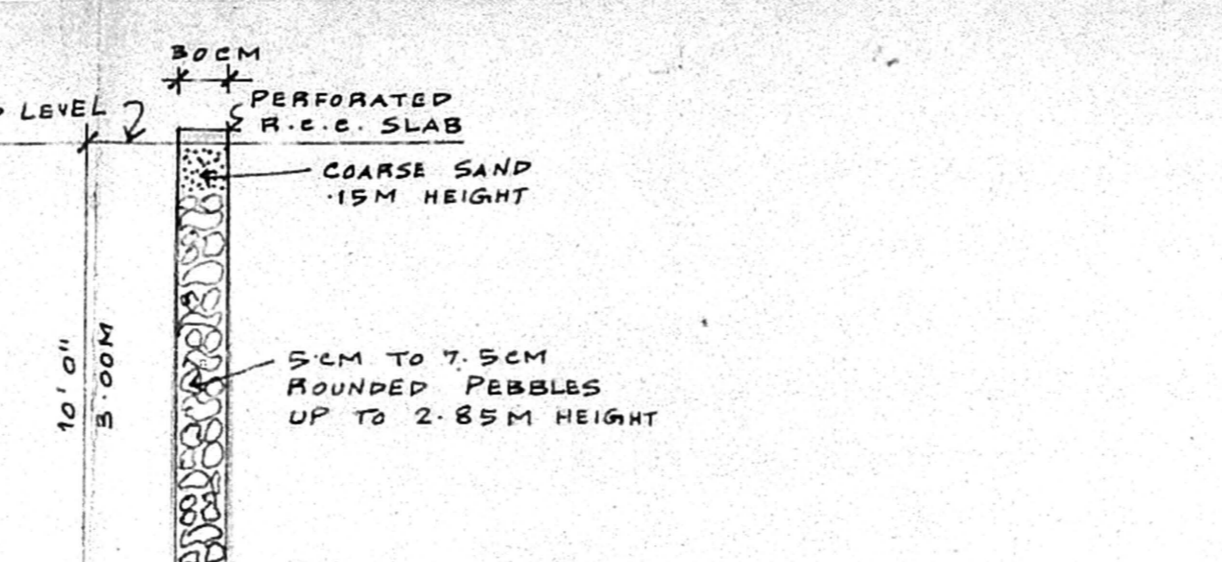 30CM
LEVEL
PERFORATED
R.C.C. SLAB
COARSE SAND
.15M HEIGHT
10' 0"
3.00M
5CM TO 7.5CM
ROUNDED PEBBLES
UP TO 2.85M HEIGHT